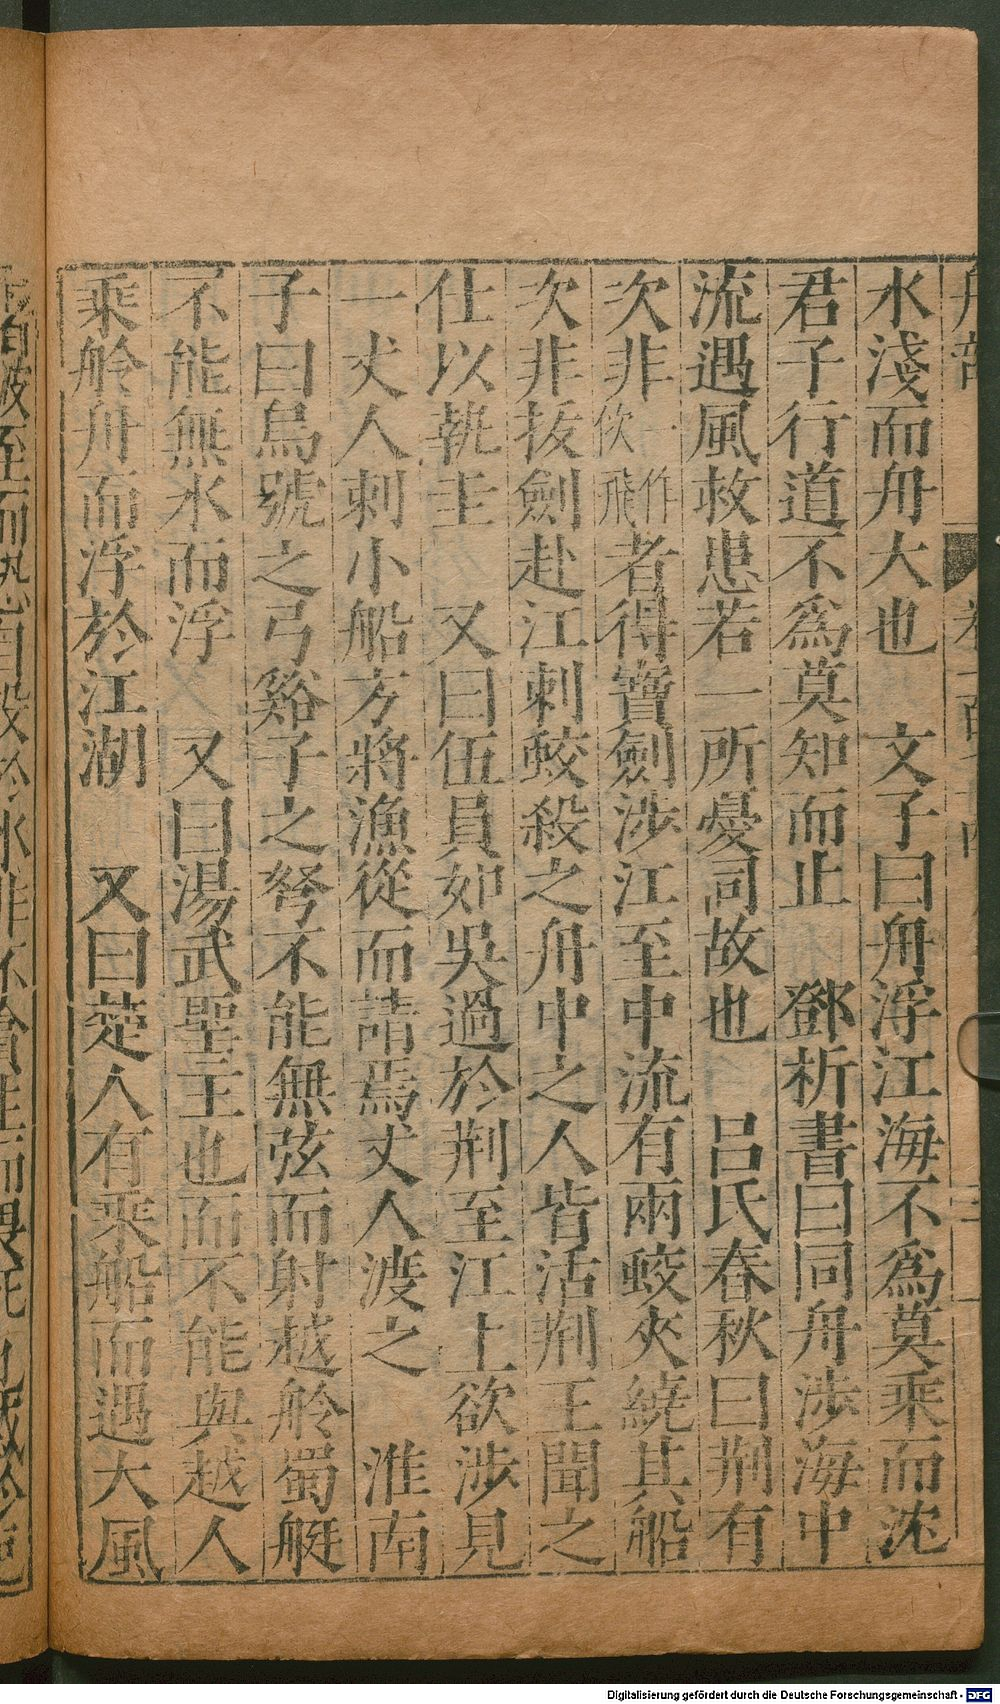 水淺而舟大也　文子曰舟浮江海不爲莫乘而沈
君子行道不爲莫知而止　鄧析書曰同舟涉海中
流遇風救患若一所憂同故也　呂氏春秋曰荆有
次非一作佽飛者得寶劍涉江至中流有兩蛟夾繞其船
次非拔劍赴江刺蛟殺之舟中之人皆活荆王聞之
仕以執圭　又曰伍員如吳過於荆至江上欲涉見
一丈人刺小船方將漁從而請焉丈人渡之　淮南
子曰烏號之弓谿子之弩不能無弦而射越舲蜀艇
不能無水而浮　又曰湯武聖王也而不能與越人
乘舲舟而浮於江湖　又曰楚人有乘船而遇大風
Digitalisierung gefördert durch die Deutsche Forschungsgemeinschaft - DFG